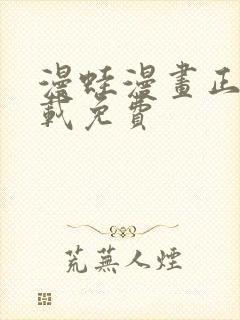 漫蛙漫畫正
載免費
荒蕪人煙